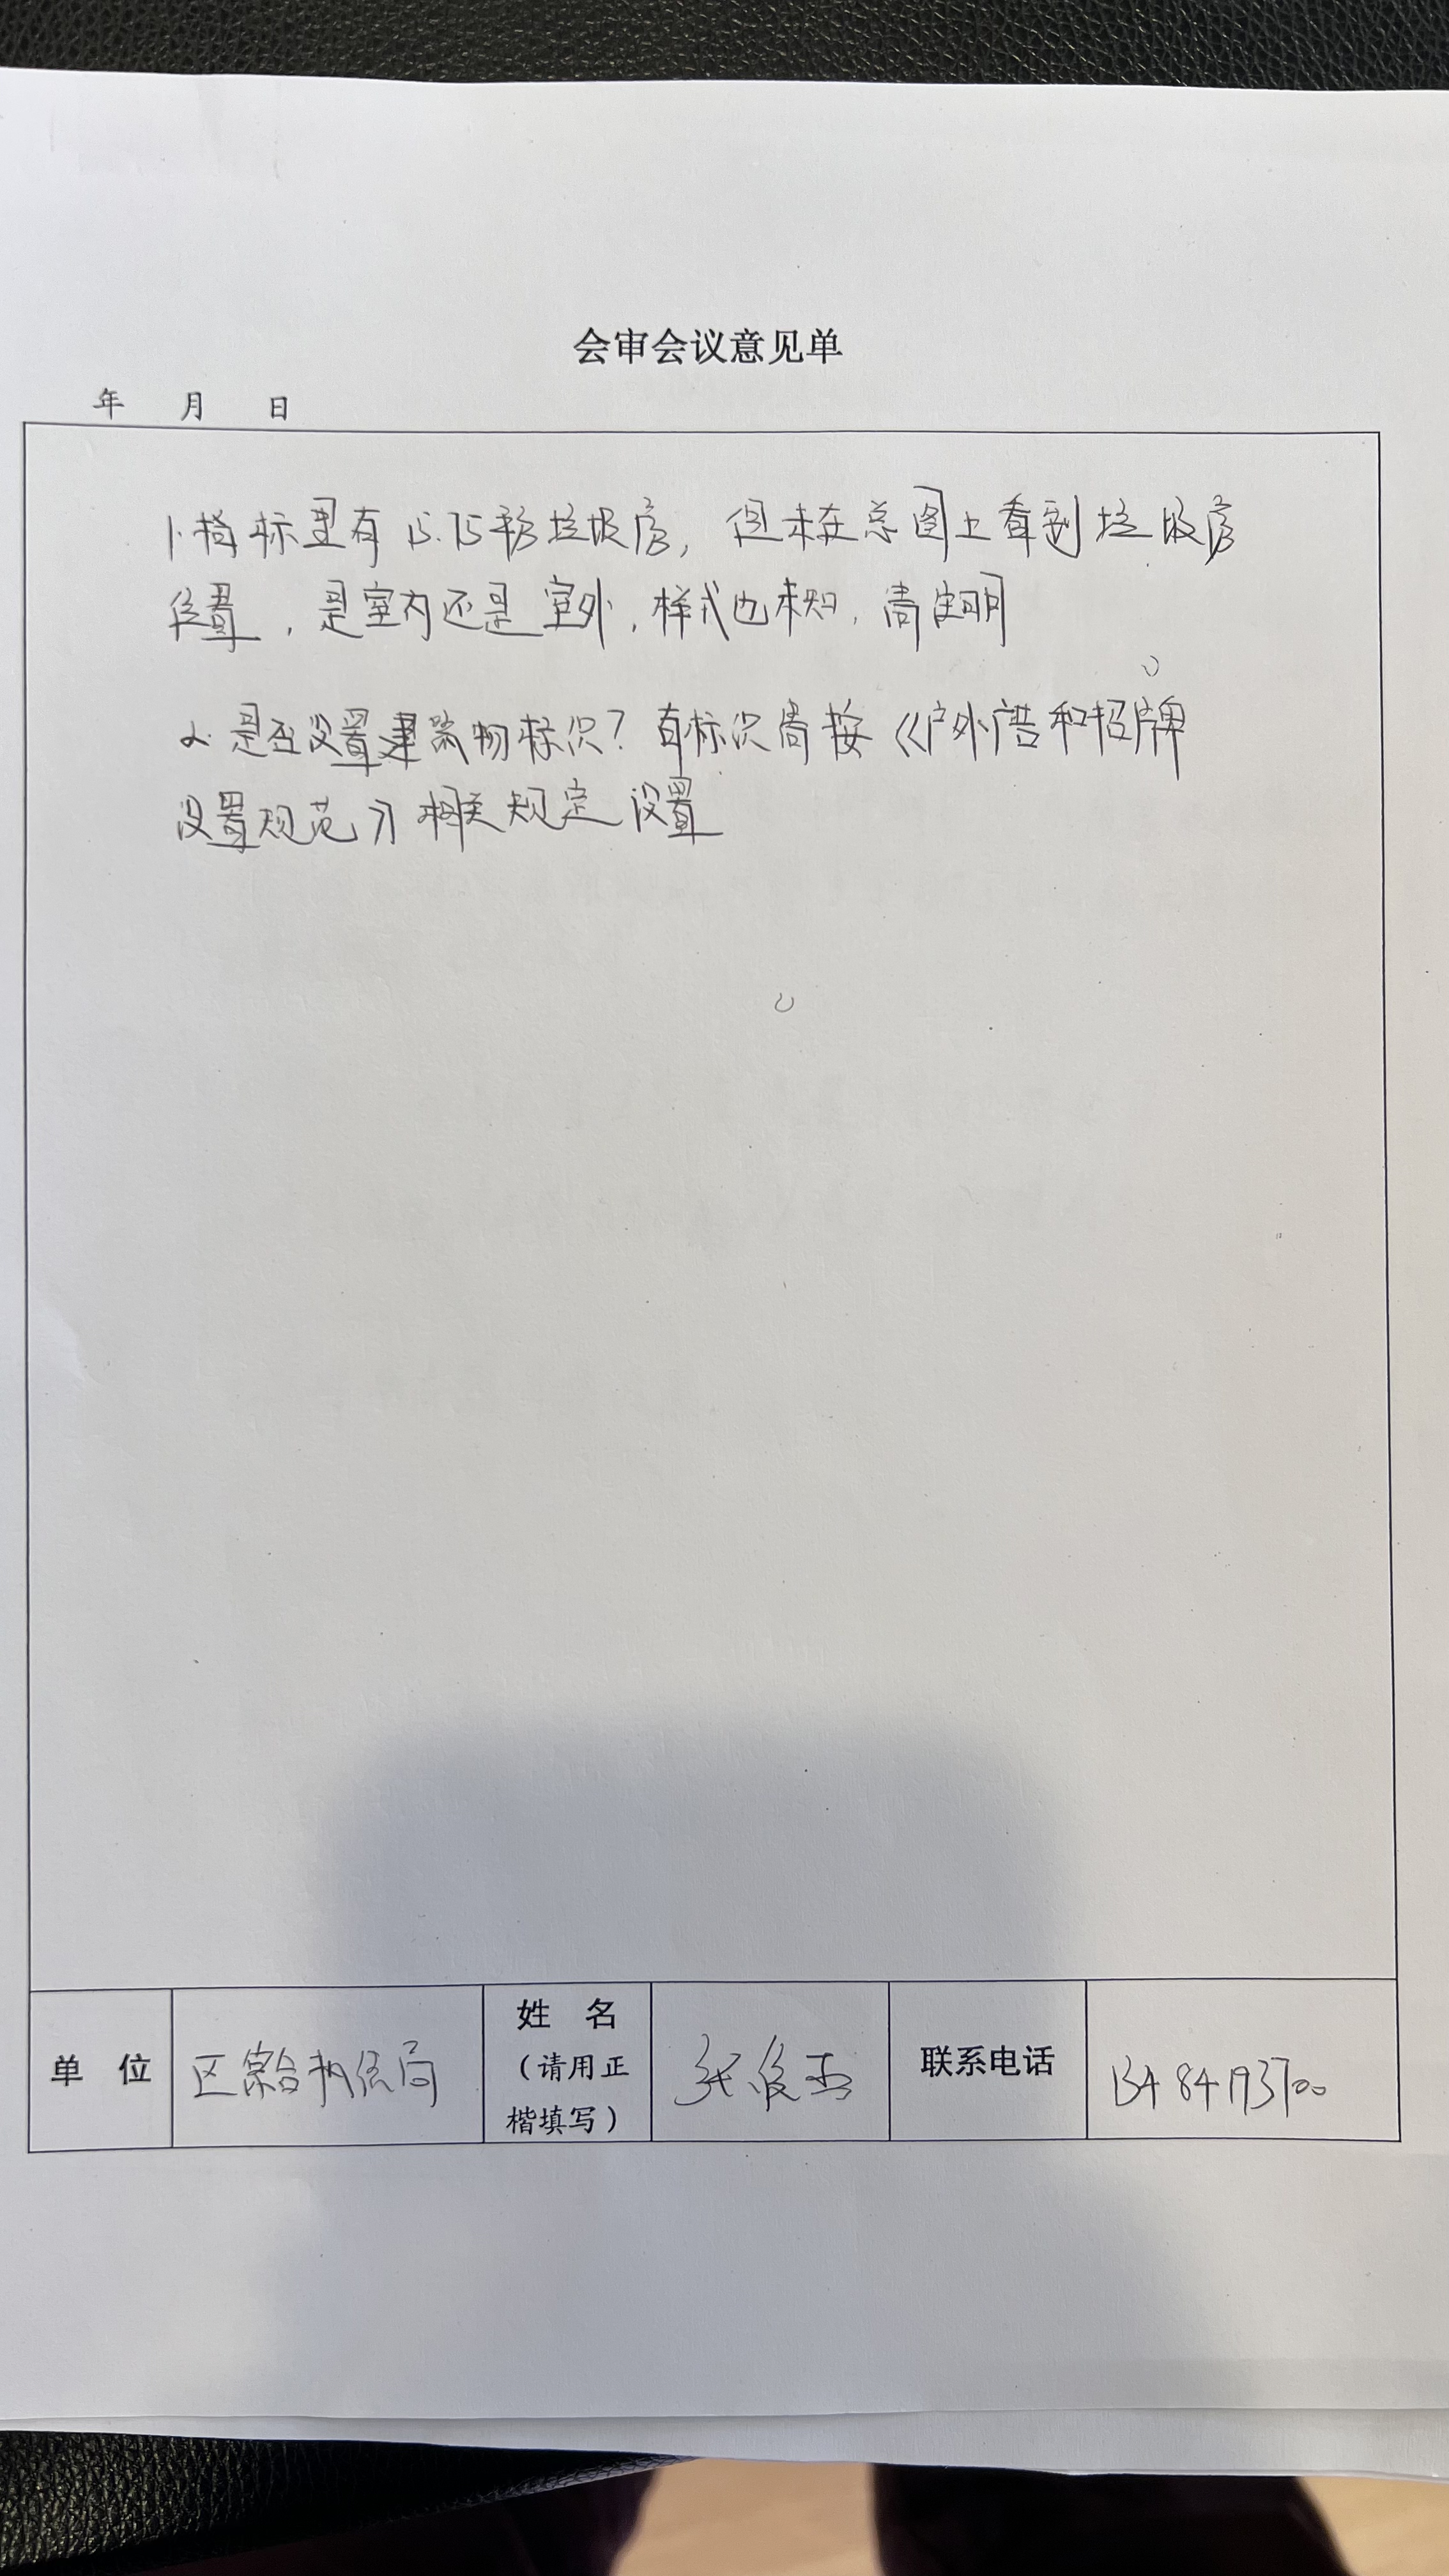 会审会议意见单
年 月 日
1.指标里有15.75平移垃圾房,但未在总图上看到垃圾房
位置,是室内还是室外,样式也未知,需注明
2.是否设置建筑物标识?有标识需按《户外广告和招牌
设置规范》相关规定设置
单 位 区综合执法局 姓 名 (请用正楷填写) 张俊杰 联系电话